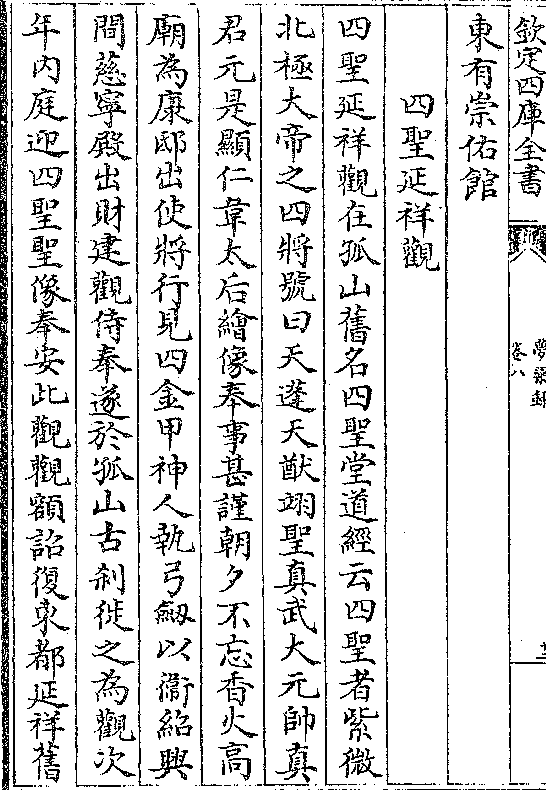 欽定四庫全書
夢粱録
卷八
東有崇佑館
四聖延祥觀
四聖延祥觀在孤山舊名四聖堂道經云四聖者紫微
北極大帝之四將號曰天蓬天猷翊聖真武大元帥真
君元是顯仁韋太后繪像奉事甚謹朝夕不忘香火高
廟為康邸出使將行見四金甲神人執弓劒以衞紹興
間慈寧殿出財建觀侍奉遂於孤山古刹徙之為觀次
年內庭迎四聖聖像奉安此觀觀額詔復東都延祥舊